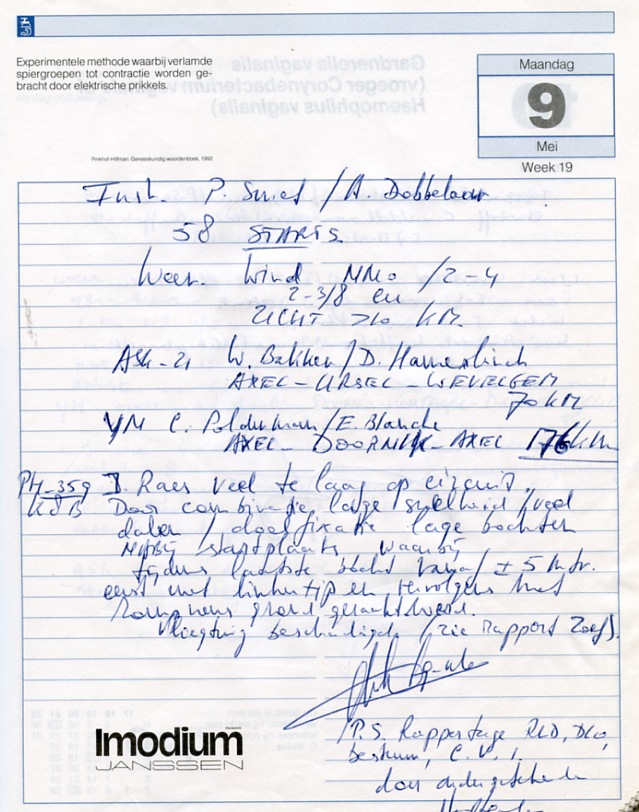 Experimentele methode waarbij verlamde
spiergroepen tot contractie worden ge-
bracht door elektrische prikkels.
Pinkhof-Hilfman, Geneeskundig woordenboek, 1992
Maandag
9
Mei
Week 19
Inst. P. / A. Dobbelaer
58 STARTS
Weer. Wind NNO / 2-4
2-3/8 cu
ZICHT >10 KM.
ASK-21 W. Bakker / D.
AXEL - URSEL - WEVELGEM
70 KM
C. Polderman / E. Blanche
AXEL - DOORNIK - AXEL 176 km
PH-359 J. Raes veel te laag op circuit.
Door combinatie lage snelheid / veel
dalen / doelfixatie lage bochten
nabij startplaats waarbij
tijdens laatste bocht vanaf ± 5 mtr.
eerst met linkertip en vervolgens met
rompneus grond geraakt werd.
Vliegtuig beschadigd (zie rapport
P.S. Rapportage RLD,
bestuur, C.V.,
door ondergetekende
Imodium
JANSSEN